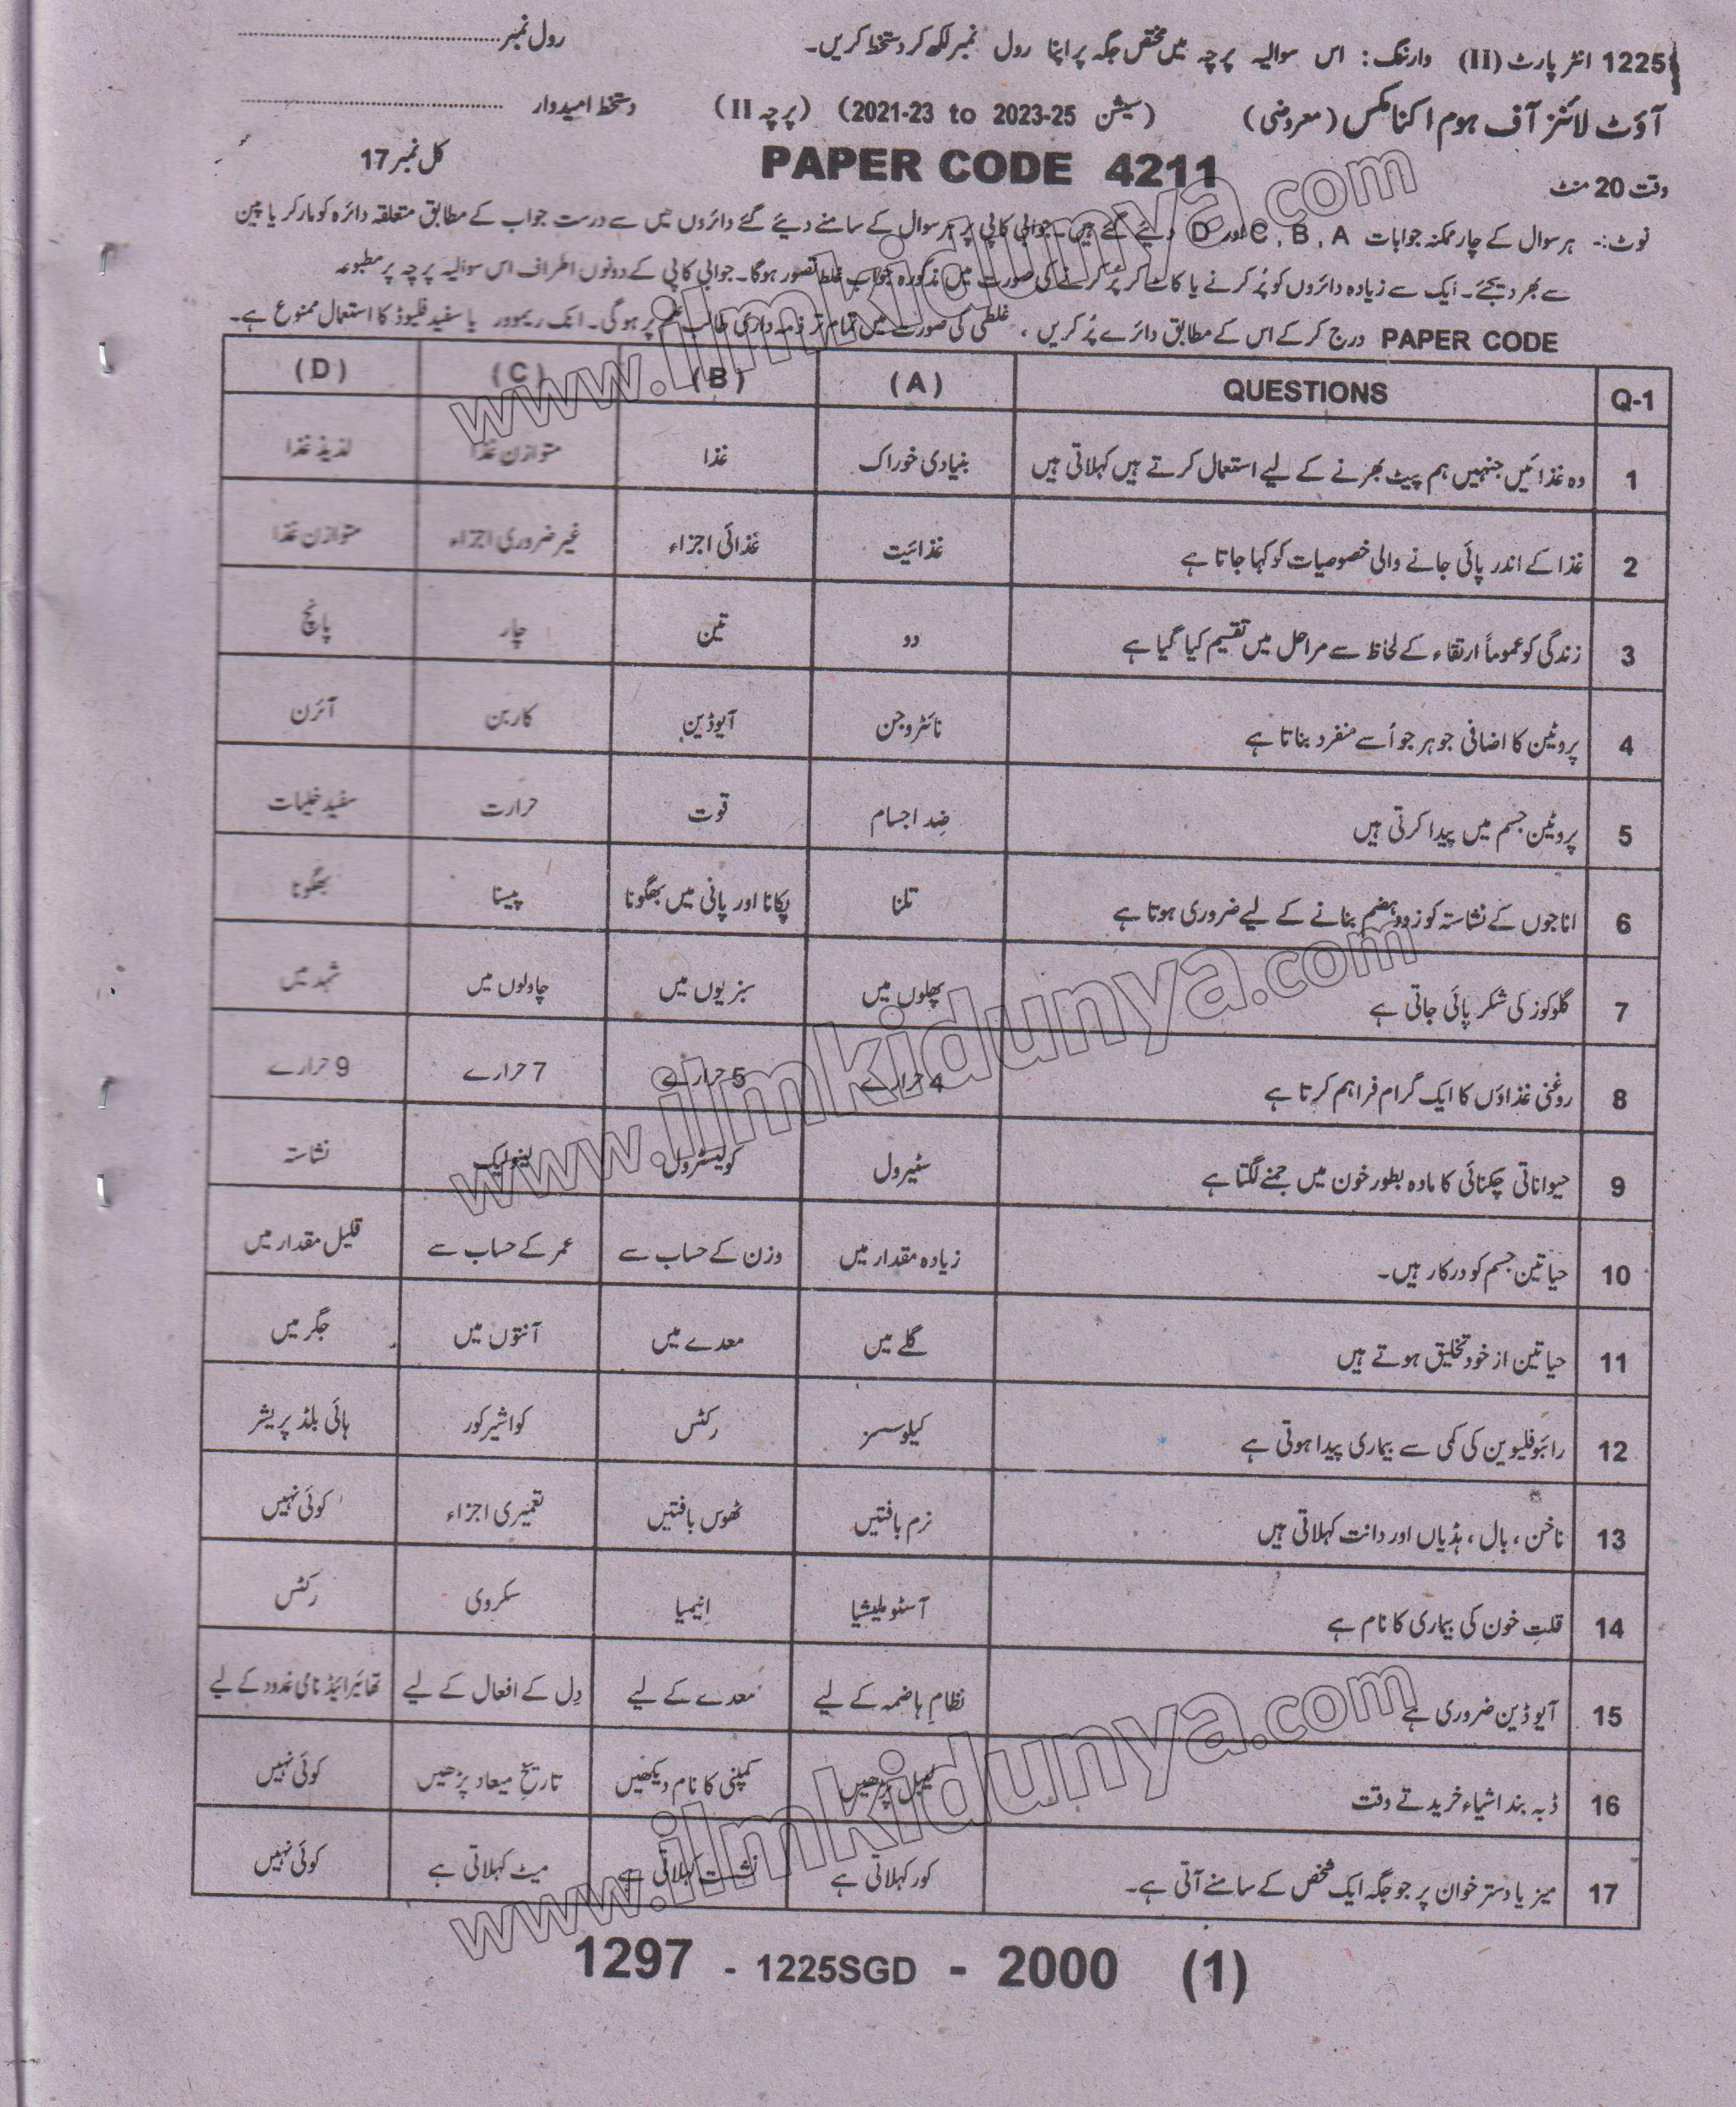 1225 انٹر پارٹ (II) وارننگ: اس سوالیہ پرچہ میں مختص جگہ پر اپنا رول نمبر لکھ کر دستخط کریں۔ رول نمبر
آؤٹ لائنز آف ہوم اکنامکس (معروضی) (سیشن 2021-23 to 2023-25) (پرچہ II) دستخط امیدوار
وقت 20 منٹ PAPER CODE 4211 کل نمبر 17
نوٹ:- ہر سوال کے چار ممکنہ جوابات A ، B ، C اور D دیئے گئے ہیں۔ جوابی کاپی پر ہر سوال کے سامنے دیئے گئے دائروں میں سے درست جواب کے مطابق متعلقہ دائرہ کو مارکر یا پین
سے بھر دیجئے۔ ایک سے زیادہ دائروں کو پُر کرنے یا کاٹ کر پُر کرنے کی صورت میں مذکورہ جواب غلط تصور ہوگا۔ جوابی کاپی کے دونوں اطراف اس سوالیہ پرچہ پر مطبوعہ
PAPER CODE درج کر کے اس کے مطابق دائرے پُر کریں ، غلطی کی صورت میں تمام تر ذمہ داری طالب علم پر ہوگی۔ انک ریموور یا سفید فلیوڈ کا استعمال ممنوع ہے۔
Q-1 QUESTIONS (A) (B) (C) (D)
1 وہ غذائیں جنہیں ہم پیٹ بھرنے کے لیے استعمال کرتے ہیں کہلاتی ہیں بنیادی خوراک غذا متوازن غذا لذیذ غذا
2 غذا کے اندر پائی جانے والی خصوصیات کو کہا جاتا ہے غذائیت غذائی اجزاء غیر ضروری اجزاء متوازن غذا
3 زندگی کو عموماً ارتقاء کے لحاظ سے مراحل میں تقسیم کیا گیا ہے دو تین چار پانچ
4 پروٹین کا اضافی جوہر جو اُسے منفرد بناتا ہے نائٹروجن آیوڈین کاربن آئرن
5 پروٹین جسم میں پیدا کرتی ہیں ضِد اجسام قوت حرارت سفید خلیات
6 اناجوں کے نشاستہ کو زود ہضم بنانے کے لیے ضروری ہوتا ہے تلنا پکانا اور پانی میں بھگونا پیسنا بھگونا
7 گلوکوز کی شکر پائی جاتی ہے پھلوں میں سبزیوں میں چاولوں میں شہد میں
8 روغنی غذاؤں کا ایک گرام فراہم کرتا ہے 4 حرارے 5 حرارے 7 حرارے 9 حرارے
9 حیواناتی چکنائی کا مادہ بطور خون میں جمنے لگتا ہے سٹیرول کولیسٹرول لینولیک نشاستہ
10 حیاتین جسم کو درکار ہیں۔ زیادہ مقدار میں وزن کے حساب سے عمر کے حساب سے قلیل مقدار میں
11 حیاتین از خود تخلیق ہوتے ہیں گلے میں معدے میں آنتوں میں جگر میں
12 رائبوفلیوین کی کمی سے بیماری پیدا ہوتی ہے کیلوسمز رکٹس کواشیرکور ہائی بلڈ پریشر
13 ناخن ، بال ، ہڈیاں اور دانت کہلاتی ہیں نرم بافتیں ٹھوس بافتیں تعمیری اجزاء کوئی نہیں
14 قلتِ خون کی بیماری کا نام ہے آسٹوملیشیا اِنیمیا سکروی رکٹس
15 آیوڈین ضروری ہے نظامِ ہاضمہ کے لیے معدے کے لیے دِل کے افعال کے لیے تھائیرائیڈ نامی غدود کے لیے
16 ڈبہ بند اشیاء خریدتے وقت لیبل پڑھیں کمپنی کا نام دیکھیں تاریخِ میعاد پڑھیں کوئی نہیں
17 میز یا دستر خوان پر جو جگہ ایک شخص کے سامنے آتی ہے۔ کور کہلاتی ہے نشست کہلاتی ہے میٹ کہلاتی ہے کوئی نہیں
1297 - 1225SGD - 2000 (1)
www.ilmkidunya.com
www.ilmkidunya.com
www.ilmkidunya.com